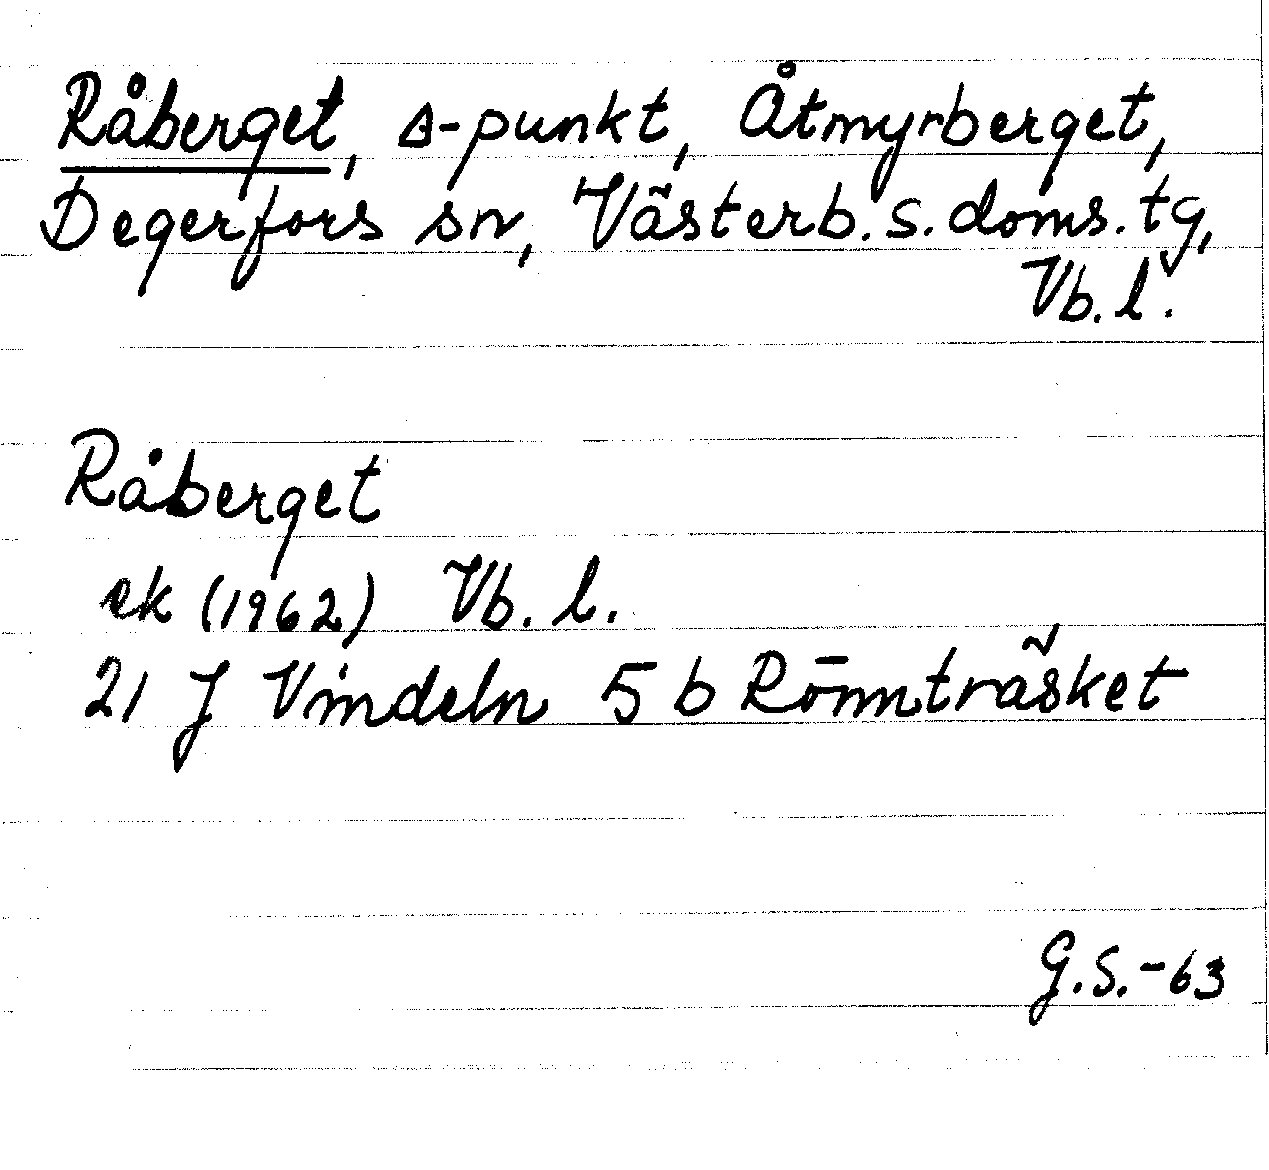 Råberget, Δ-punkt, Åtmyrberget,
Degerfors sn, Västerb. s. doms. tg,
Vb. l.
Råberget
ek (1962) Vb. l.
21 J Vindeln 5 b Rönnträsket
G.S.-63